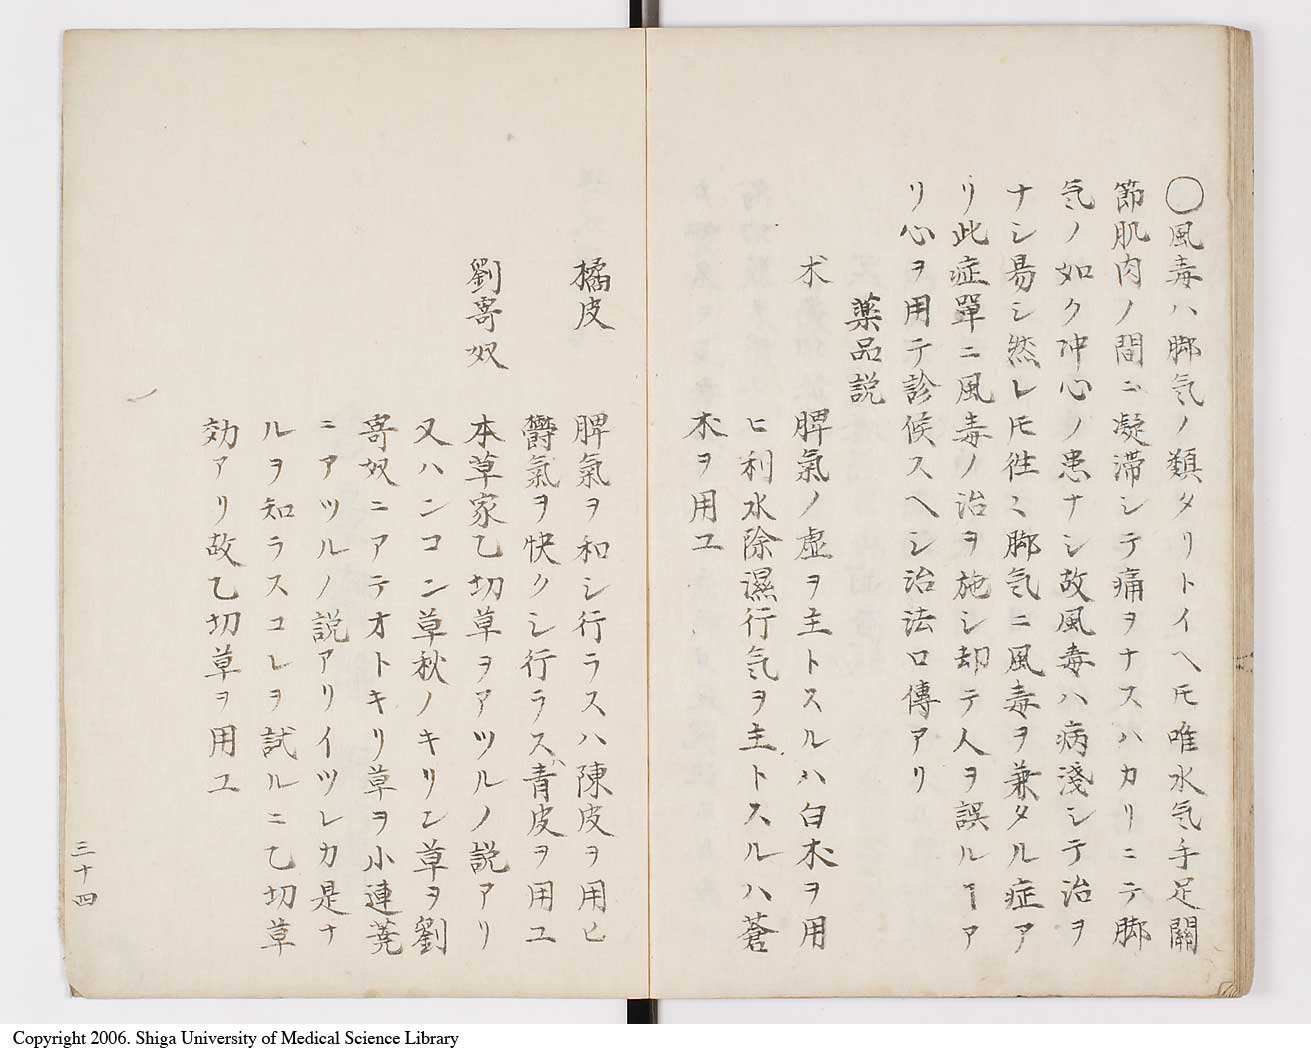 〇風毒ハ脚気ノ類タリトイヘ𪜈唯水气手足關
節肌肉ノ間ニ凝滞シテ痛ヲナスハカリニテ脚
气ノ如ク冲心ノ患ナシ故風毒ハ病淺シテ治ヲ
ナシ昜シ然レ𪜈徃〻脚気ニ風毒ヲ兼タル症ア
リ此症單ニ風毒ノ治ヲ施シ却テ人ヲ誤ルヿア
リ心ヲ用テ診候スヘシ治法口傳アリ
薬品説
朮
脾氣ノ虚ヲ主トスルハ白朮ヲ用
ヒ利水除濕行気ヲ主トスルハ蒼
朮ヲ用ユ
橘皮
脾氣ヲ和シ行ラスハ陳皮ヲ用ヒ
欝氣ヲ快クシ行ラスハ青皮ヲ用ユ
劉寄奴
本草家乙切草ヲアツルノ説アリ
又ハンコン草秋ノキリン草ヲ劉
寄奴ニアテオトキリ草ヲ小連蕘
ニアツルノ説アリイツレカ是ナ
ルヲ知ラスコレヲ試ルニ乙切草
効アリ故乙切草ヲ用ユ
三十四
Copyright 2006. Shiga University of Medical Science Library